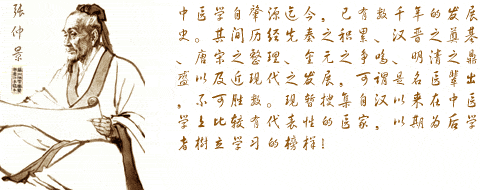 张仲景
中医学自肇源迄今，已有数千年的发展
史。其间历经先秦之积累、汉晋之奠基
、唐宋之整理、金元之争鸣、明清之鼎
盛以及近现代之发展，可谓是名医辈出
，不可胜数。现暂搜集自汉以来在中医
学上比较有代表性的医家，以期为后学
者树立学习的榜样！